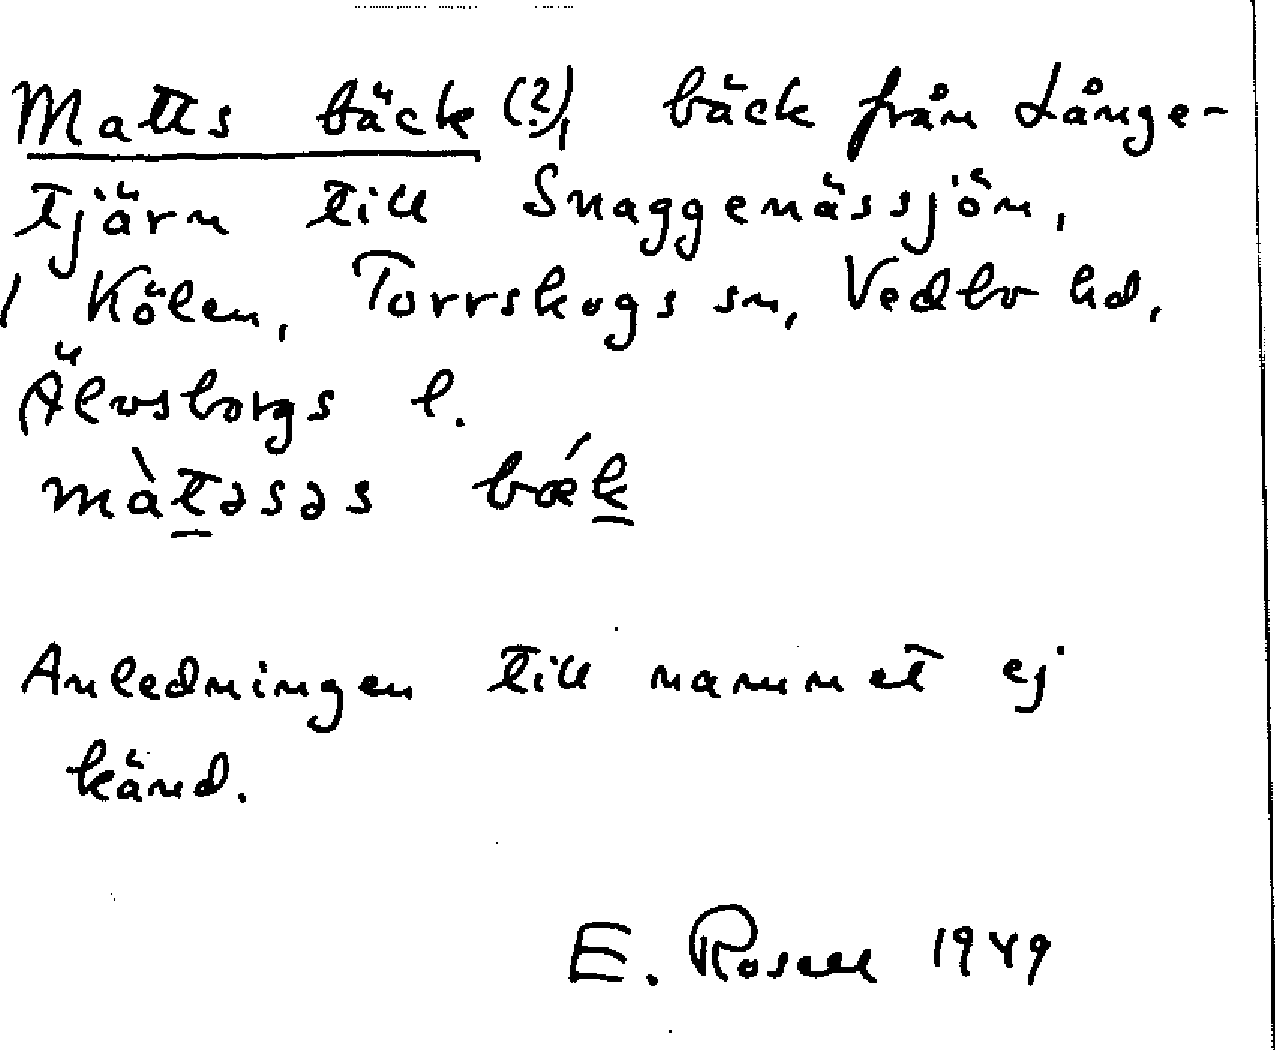 Matts bäck (?), bäck från Långe-
tjärn till Snaggenässjön,
/ Kölen, Torrskogs sn, Vedbo hd,
Älvsborgs l.
màt̲əsəs bǽk̲
Anledningen till namnet ej
känd.
E. Rosell 1949